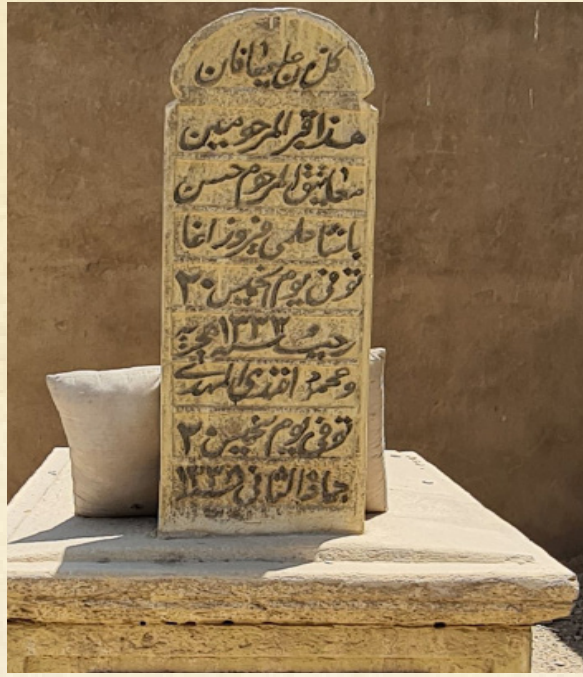 كل من عليها فان
هذا قبر المرحومين
معاتيق المرحوم حسن
باشا حلمى فيروز اغا
توفى يوم الخميس ٢٠
رجب سنه ١٣٣٣ هجريه
ومحمود افندى المهدى
توفى يوم الخميس ٢
جماد الثانى سنة